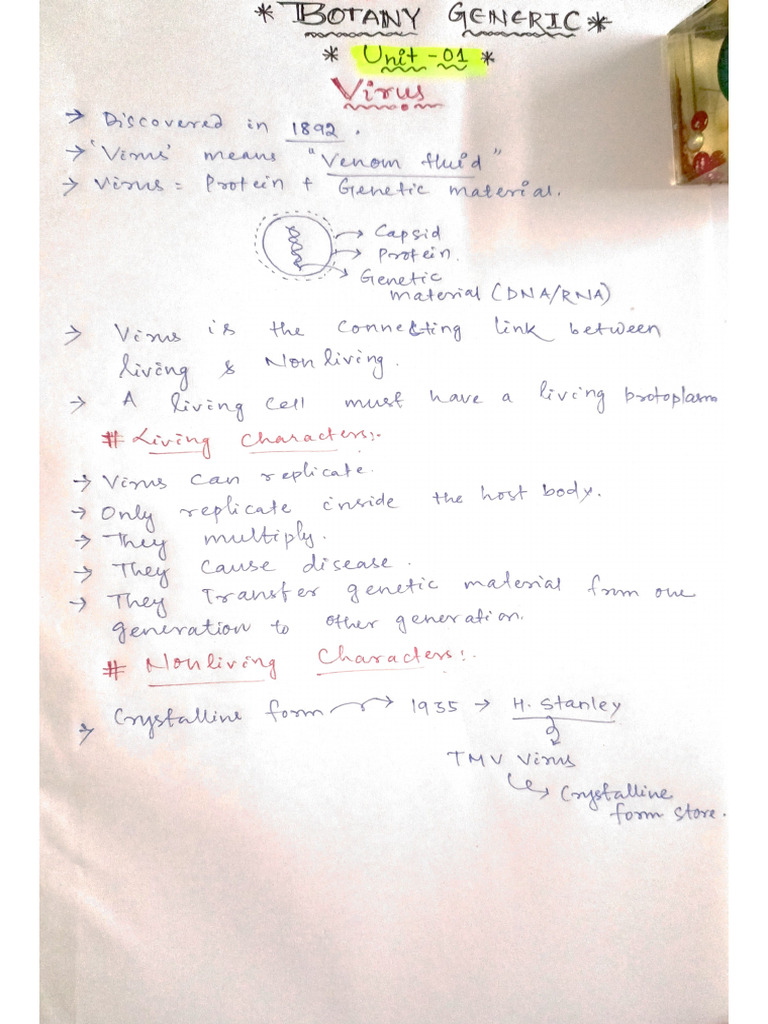 * BOTANY GENERIC *
* Unit -01 *
Virus
→ Discovered in 1892.
→ 'Virus' means "Venom fluid"
→ Virus = Protein + Genetic material.
→ Capsid
→ Protein.
→ Genetic
material (DNA/RNA)
→ Virus is the connecting link between
living & Non living.
→ A living cell must have a living protoplasm
# Living Characters:-
→ Virus can replicate.
→ Only replicate inside the host body.
→ They multiply.
→ They cause disease.
→ They Transfer genetic material from one
generation to other generation.
# Nonliving Characters:-
→ Crystalline form → 1935 → H. Stanley
TMV Virus
→ Crystalline
form store.